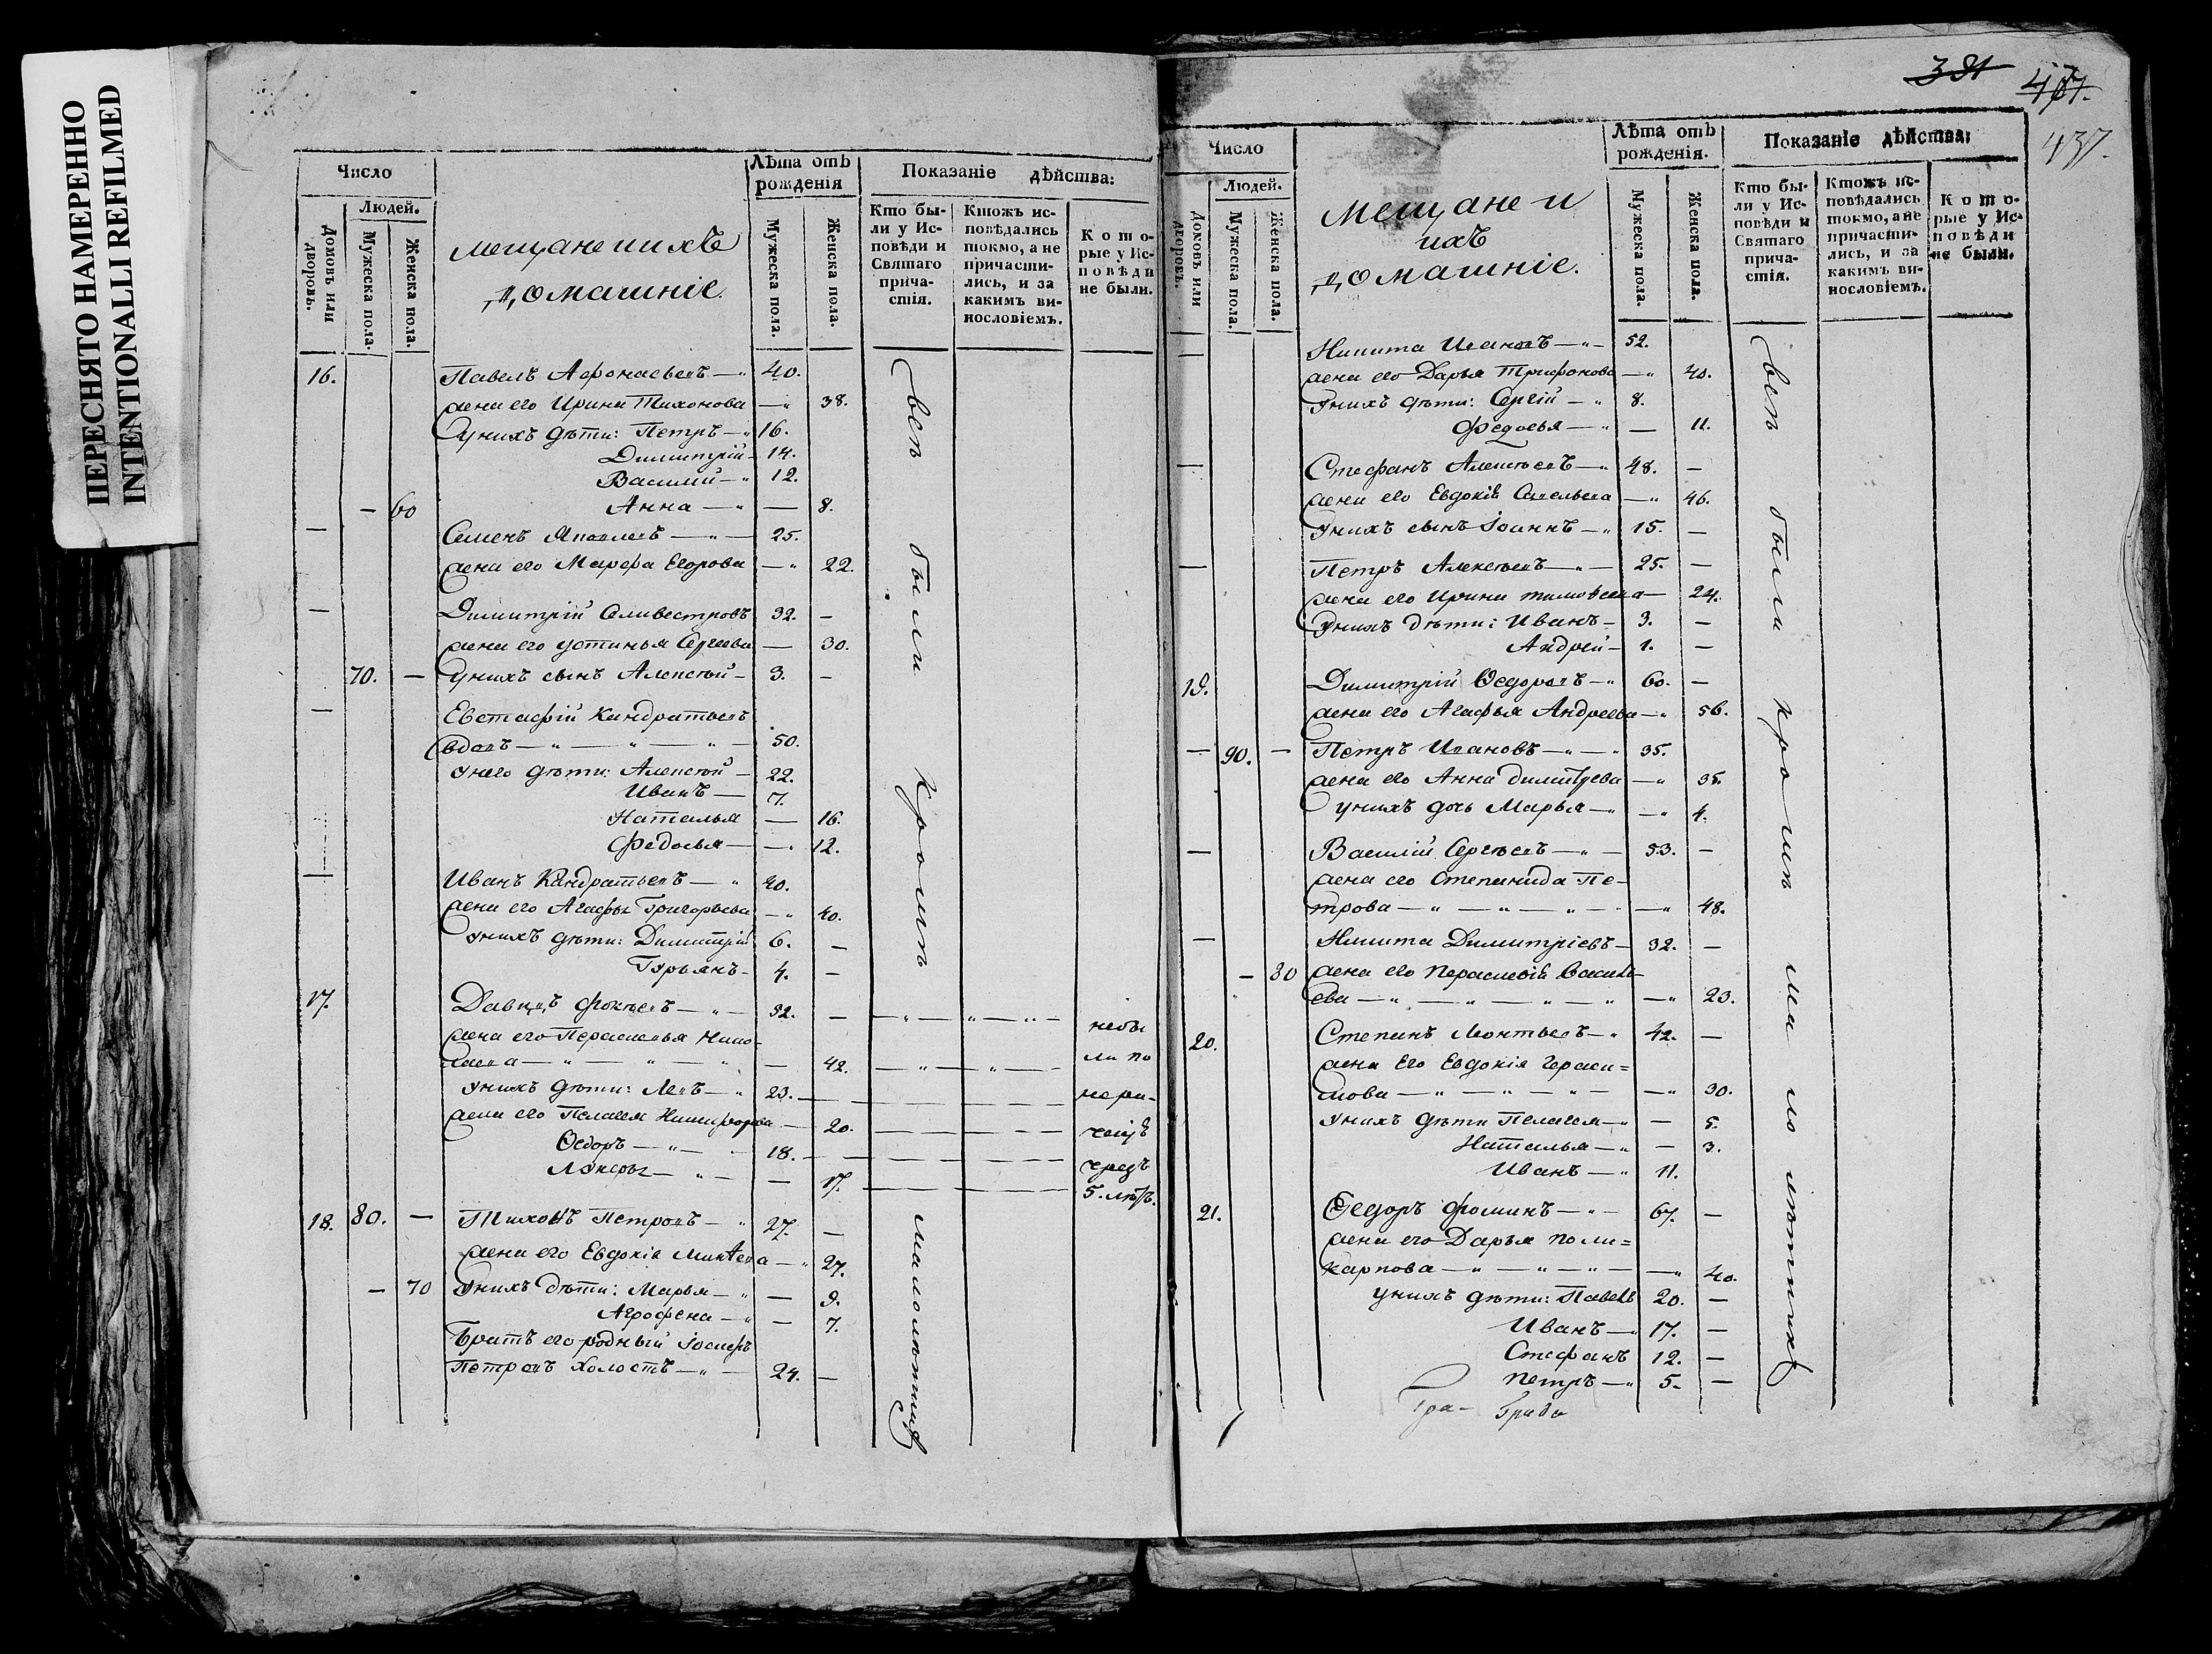 ПЕРЕСНЯТО НАМЕРЕННО
INTENTIONALLI REFILMED
Число
Людей.
Домовъ или дворовъ.
Мужеска пола.
Женска пола.
мещане и ихъ
домашніе.
Лѣта отъ рожденія
Мужеска пола.
Женска пола.
Показаніе дѣйства:
Кто были у Исповѣди и Святаго причастія.
Ктожъ исповѣдались токмо, а не причастились, и за какимъ винословіемъ.
Которые у Исповѣди не были.
16. Павелъ Афонасьевъ — 40.
жена его Ирина Тихонова — 38.
у нихъ дѣти: Петръ — 16.
Димитрій — 14.
Василій — 12.
— 60 Анна — 8.
— Семенъ Яковлевъ — 25.
жена его Марфа Егорова — 22.
— Димитрій Селивестровъ 32. —
жена его Устинья Сергеева — 30.
70. — у нихъ сынъ Алексѣй — 3. —
— Евстафій Кандратьевъ
вдовъ — 50.
у него дѣти: Алексѣй — 22.
Иванъ — 7.
Наталья — 16.
Федосья — 12.
— Иванъ Кандратьевъ — 40.
жена его Агафья Григорьева — 40.
у нихъ дѣти: Димитрій 6. —
Гурьянъ — 4. —
17. Давидъ Фокѣевъ — 52. —
жена его Парасковья Нико-
лаева — 42.
у нихъ дѣти: Левъ — 23.
жена его Пелагея Никифорова — 20.
Ѳедоръ — 18.
Лукерья — 17.
небы
ли по
нера-
чеꙋ
чрезъ
5. лѣтъ.
18. 80. — Тихонъ Петровъ — 27. —
жена его Евдокія — 27.
— 70 у нихъ дѣти: Марья — 9.
Агрофена — 7.
Братъ его родный Іосифъ
Петровъ холостъ — 24. —
всѣ были кромѣ малолѣтных
391
407.
437.
Число
Людей.
Домовъ или дворовъ.
Мужеска пола.
Женска пола.
Мещане и
ихъ
домашніе.
Лѣта отъ рожденія.
Мужеска пола.
Женска пола.
Показаніе дѣйства:
Кто были у Исповѣди и Святаго причастія.
Ктожъ исповѣдались токмо, а не причастились, и за какимъ винословіемъ.
Которые у Исповѣди не были.
— Никита Ивановъ — 52.
жена его Дарья Трифонова — 40.
у нихъ дѣти: Сергій — 8.
Федосья — 11.
— Стефанъ Алексѣевъ — 48. —
жена его Евдокія Савельева — 46.
у нихъ сынъ Іоаннъ — 15. —
— Петръ Алексѣевъ — 25. —
жена его Ирина Тимовеева — 24.
у нихъ дѣти: Иванъ — 3. —
Андрей — 1. —
19. Димитрій Ѳедоровъ — 60. —
жена его Агафья Андреева — 56.
— 90. — Петръ Ивановъ — 35.
жена его Анна Димитріева — 35.
у нихъ дочь Марья — 4.
— Василій Сергѣевъ — 53. —
жена его Степанида Пе-
трова — 48.
— Никита Димитріевъ — 32. —
— 80 жена его Параскевія Василь-
ева — 23.
20. Степанъ Леонтьевъ — 42. —
жена его Евдокія Гераси=
мова — 30.
у нихъ дѣти Пелагея — 5.
Наталья — 3.
Иванъ — 11.
21. Ѳедоръ Фоминъ — 67. —
жена его Дарья Поли=
карпова — 40.
у нихъ дѣти: Павелъ 20. —
Иванъ — 17. —
Стефанъ 12. —
Петръ — 5. —
всѣ были кромѣ малолѣтныхъ